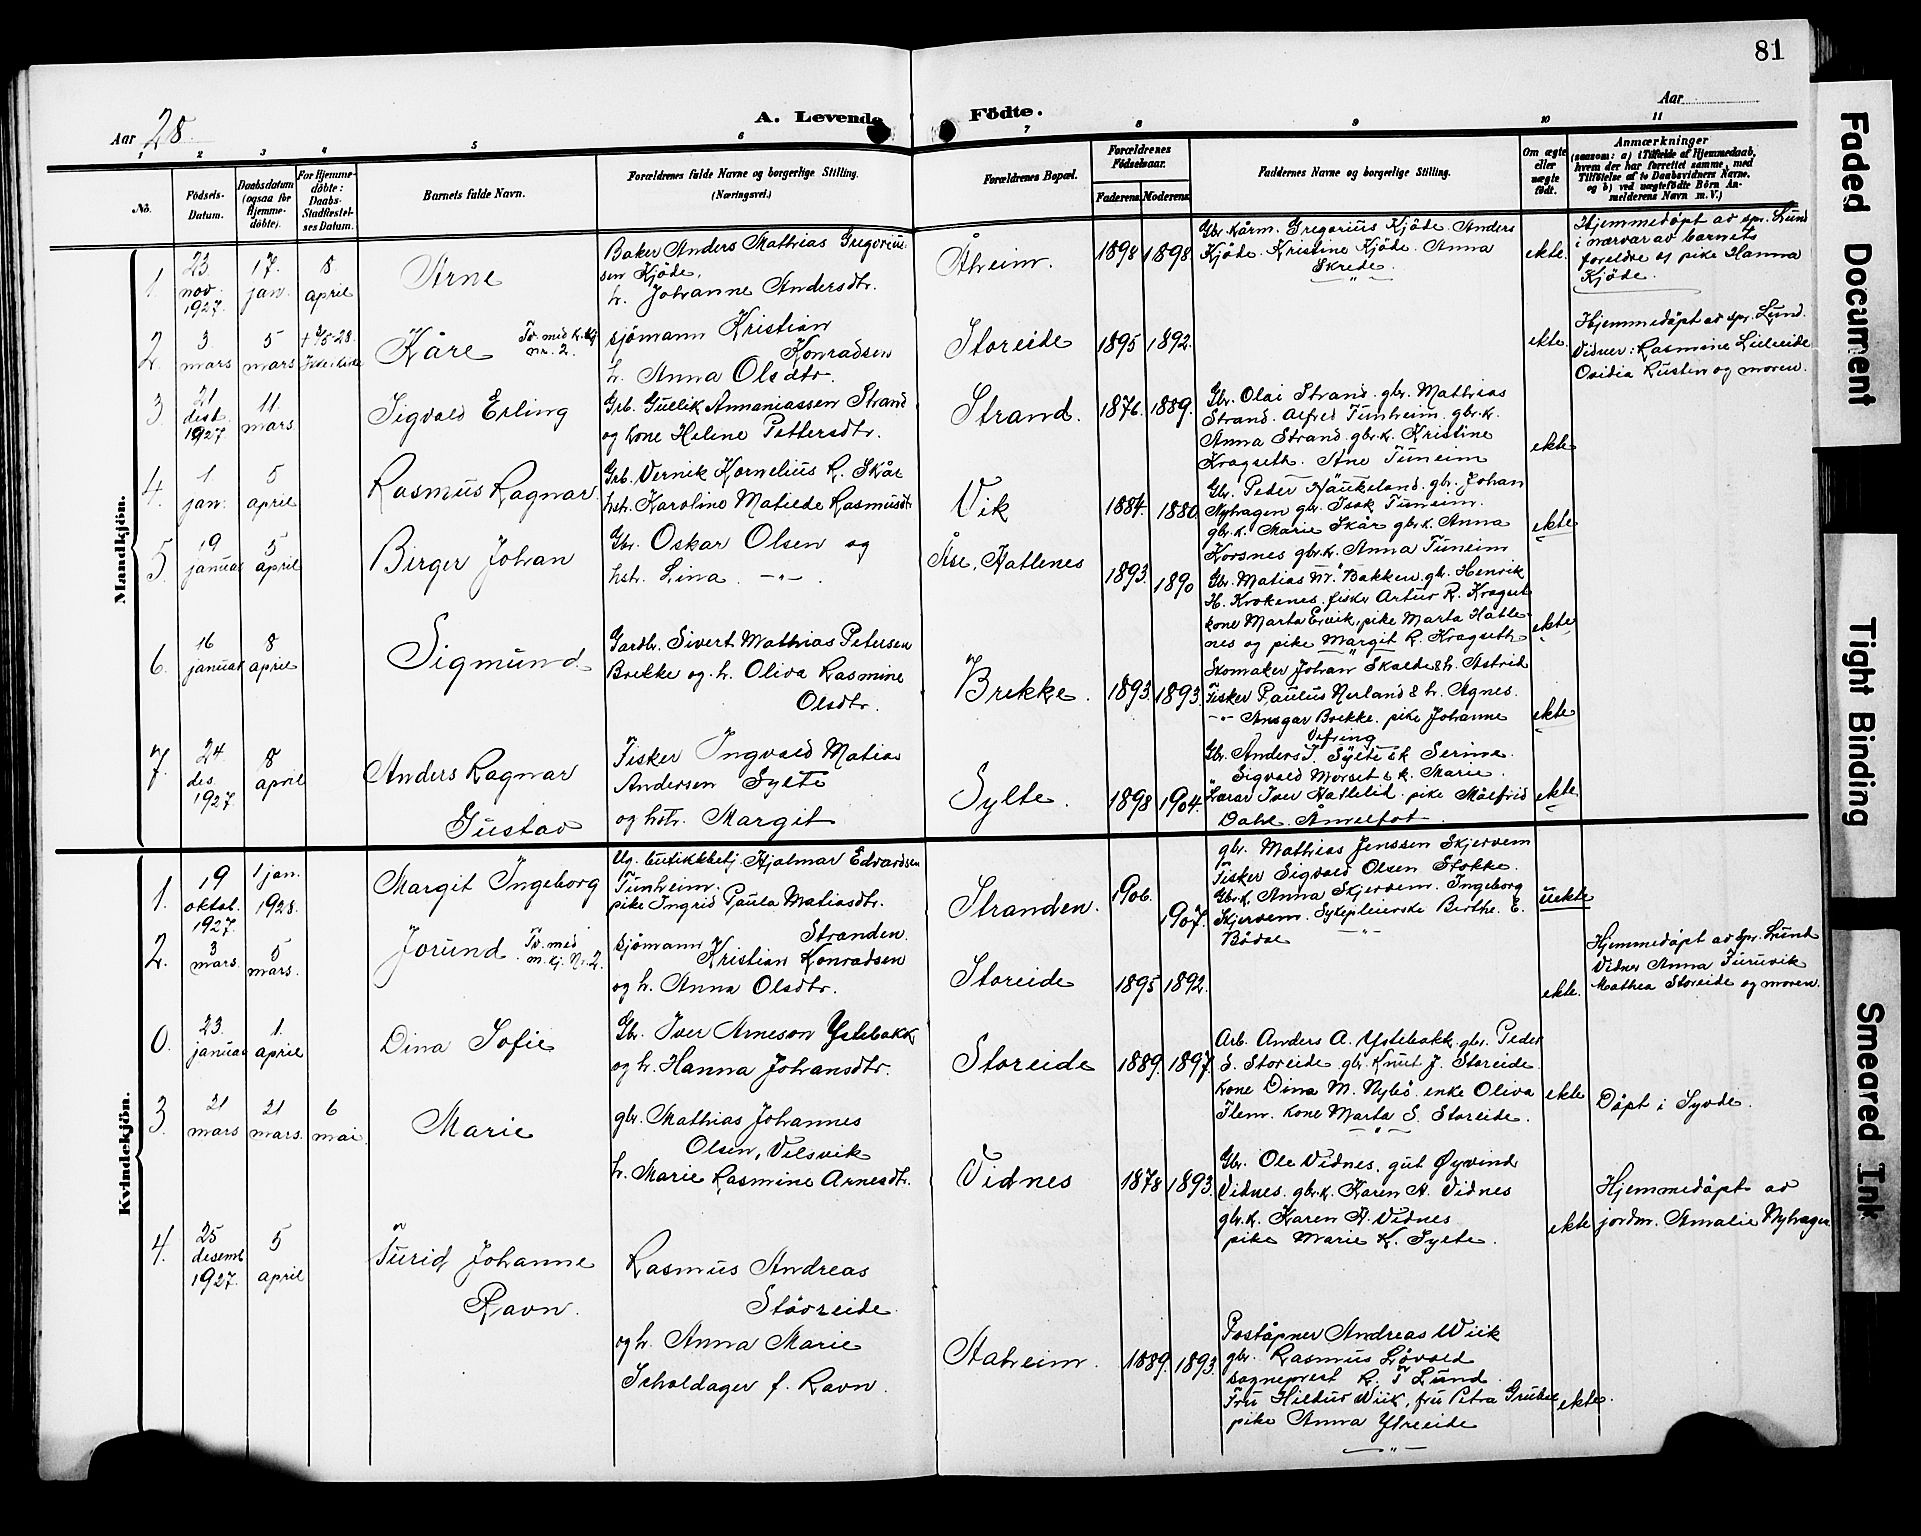 81
Aar 28.
A. Levende Födte.
Aar
1 2 3 4 5 6 7 8 9 10 11
No.
Födsels-
Datum.
Daabsdatum
(ogsaa for
Hjemme-
döbte).
For Hjemme-
döbte:
Daabs-
Stadfæstel-
ses Datum.
Barnets fulde Navn.
Forældrenes fulde Navne og borgerlige Stilling.
(Næringsvei.)
Forældrenes Bopæl.
Forældrenes
Födselsaar.
Faderens Moderens
Faddernes Navne og borgerlige Stilling.
Om ægte
eller
uægte
födt.
Anmærkninger
(saasom: a) i Tilfælde af Hjemmedaab,
hvem der har forrettet samme, med
Tilföielse af to Daabsvidners Navne,
og b) ved uægtefödte Börn An-
melderens Navn m. V.)
Mandkjön.
1.
23.
nov.
1927.
17.
jan.
8
april
Arne
Baker Anders Mathias Gregorius-
sen Kjöde.
h. Johanne Andersdtr.
Åheim.
1898 1898
Gbr. kårm. Gregorius Kjöde. Anders
Kjöde. Kristine Kjöde. Anna
Skrede.
ekte.
Hjemmedöpt av spr. Lund
i nærvær av barnets
foreldre og pike Hanna
Kjöde.
2.
3.
mars
5
mars
Kåre
Tv. med k. kj
nr. 2.
sjömann Kristian
Konradsen
h. Anna Olsdtr.
Storeide
1895 1892.
ekte.
Hjemmedöpt av spr. Lund.
Vidner: Rasmine Lieleide
Ovidia Rusten og moren.
3
21
des.
1927.
11.
mars
Sigvald Erling
Grb. Gullik Annaniassen Strand
og kone Helene Pettersdtr.
Strand.
1876. 1889.
Gbr. Olai Strand. gbr. Mathias
Strand. Alfred Tunheim. gbr.k.
Anna Strand. gbr.k. Kristine
Kragseth. Ane Tuneim
ekte
4.
1
jan.
5
april
Rasmus Ragnar
Grb. Vernik Kornelius R. Skår
hst. Karoline Matilde Rasmusdt
Vik
1884. 1880.
Gbr. Peder Haukeland. gbr. Johan
Nyhagen gbr. Isak Tuneim.
gbr.k. Marie Skår gbr.k. Anna
Korsnes gbr.k. Anna Tuneim
ekte
5.
19
januar
5
april
Birger Johan
Gbr. Oskar Olsen og
hstr. Lina. -"-
Åse, Hatlenes
1893. 1890
Gbr. Matias Nr. Bakken gbr. Henrik
H. Krokenes. fisker Artur R. Kragset
kone Marta Ervik, pike Marta Hatle-
nes og pike Margit R. Kragseth
ekte
6.
16
januar
8
april
Sigmund
Gardbr. Sivert Mathias Petersen
Brekke og h. Oliva Rasmine
Olsdtr.
Brekke.
1893. 1893.
Skomaker Johan Skalde & h. Astrid
Fisker Paulus Nerland & h. Agnes.
-"- Ansgar Brekke. pike Johanne
Vefring
ekte
7.
24.
des.
1927.
8
april
Anders Ragnar
Gustav
Fisker Ingvald Matias
Andersen Sylte
og hstr. Margit
Sylte.
1898 1904.
Gbr. Anders T. Sylte & k. Serine.
Sigvald Morset & k. Marie.
Lærar Iver Hatlelid. pike Målfrid
Dahl. Åmelfot.
ekte.
Kvindekjön.
1.
19
oktob.
1927.
1 jan.
1928.
Margit Ingeborg
Ug. butikkbetj. Hjalmar Edvardsen
Tunheim.
pike Ingrid Paula Matiasdtr.
Stranden.
Stranden.
1906. 1907.
gbr. Mathias Jenssen Skjervem
Fisker Sigvald Olsen Stokke.
Gbr.k. Anna Skjervem. Ingeborg
Skjervem. Sykepleierske Berthe. E.
Bödal
uekte
2.
3
mars.
5
mars.
Jorund
Tv. med
m. kj. Nr. 2.
sjömann
Kristian Konradsen
og h. Anna Olsdtr.
Storeide
1895 1892.
ekte.
Hjemmedöpt av spr. Lund
Vidner Anna Furuvik
Mathea Storeide og moren.
0.
23.
januar
1.
april
Dina Sofie
Gb. Iver Arneson Ystebakk
og h. Hanna Johansdtr.
Storeide
1889. 1897.
Arb. Anders A. Ystebakk gbr. Peder
S. Storeide gbr. Knut J. Storeide.
kone Dina M. Nybö. enke Oliva
Flem. kone Marta S. Storeide.
ekte
Döpt i Syvde.
3.
21
mars
21
mars.
6
mai.
Marie
gbr. Mathias Johannes
Olsen, Vilsvik
h. Marie Rasmine Arnesdtr.
Vidnes
1878 1893.
Gbr. Ole Vidnes, gut Øyvind
Vidnes. gbr.k. Karen A. Vidnes
gbr.k. Karen P. Vidnes
pike Marie K. Sylte.
ekte
Hjemmedöpt av
jordm. Amalie Nyhagen
4.
25
desemb.
1927.
5
april
Turid Johanne
Ravn.
Rasmus Andreas
Storeide.
og h. Anna Marie
Scholdager f. Ravn.
Staheim.
1889. 1893.
Poståpner Andreas Wiik
gbr. Rasmus Lövold
sogneprest R. T Lund.
Fru Hildur Wiik, fru Petra Grubel
pike Anna Ytreeide
ekte.
Faded Document
Tight Binding
Smeared Ink